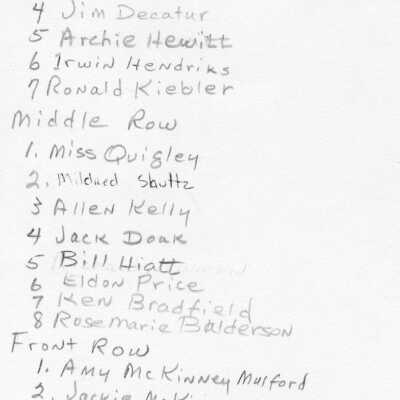 4 Jim Decatur
5 Archie Hewitt
6 Irwin Hendriks
7 Ronald Kiebler
Middle Row
1. Miss Quigley
2. Mildred Shuttz
3 Allen Kelly
4 Jack Doak
5 Bill Hiatt
6 Eldon Price
7 Ken Bradfield
8 Rosemarie Balderson
Front Row
1. Amy McKinney Mulford
2. Jackie